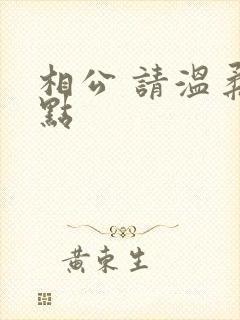 相公 請溫柔
點
黃東生